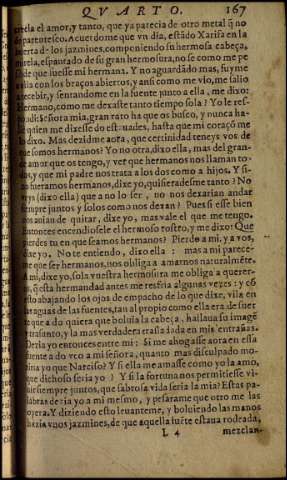 QVARTO. 167
crecia el amor, y tanto, que ya parecia de otro metal q̃ no
de parentesco. Acuerdome que vn dia, estãdo Xarifa en la
huerta de los jazmines, componiendo su hermosa cabeça,
mirela, espantado de su gran hermosura, no se como me pe
so de que fuesse mi hermana. Y no aguardãdo mas, fuyme
a ella con los braços abiertos, y ansi como me vio, me salio
a recebir, y sentandome en la fuente junto a ella, me dixo:
hermano, como me dexaste tanto tiempo sola? Yo le res-
põdi: señora mia, gran rato ha que os busco, y nunca ha-
lle quien me dixesse do estauades, hasta que mi coraçõ me
lo dixo. Mas dezidme aora, que certinidad teneys vos de
que somos hermanos? Yo no otra, dixo ella, mas del gran-
de amor que os tengo, y ver que hermanos nos llaman to-
dos, y que mi padre nos trata a los dos como a hijos. Y si
no fueramos hermanos, dixe yo, quisieradesme tanto? No
veys (dixo ella) que a no lo ser, no nos dexarian andar
siempre juntos y solos como nos dexan? Pues si esse bien
nos auian de quitar, dixe yo, mas vale el que me tengo.
Entonces encendiosele el hermoso rostro, y me dixo: Que
pierdes tu en que seamos hermanos? Pierdo a mi, y a vos,
dixe yo. No te entiendo, dixo ella: mas a mi parece-
me que ser hermanos, nos obliga a amarnos naturalmẽte.
A mi, dixe yo, sola vuestra hermosura me obliga a querer-
os, q̃ esta hermandad antes me resfria algunas vezes: y cõ
esto abajando los ojos de empacho de lo que dixe, vila en
las aguas de las fuentes, tan al propio como ella era de suer
te que a do quiera que boluia la cabeça, hallaua su imagẽ
y trasunto, y la mas verdadera trasladada en mis entrañas.
Dezia yo entonces entre mi: Si me ahogasse aora en esta
fuente a do veo a mi señora, quanto mas disculpado mo-
riria yo que Narciso? Y si ella me amasse como yo la amo,
que dichoso seria yo? Y si la fortuna nos permitiesse vi-
uir siempre juntos, que sabrosa vida seria la mia? Estas pa-
labras dezia yo a mi mesmo, y pesarame que otro me las
oyera. Y diziendo esto leuanteme, y boluiendo las manos
hazia vnos jazmines, de que aquella fuẽte estaua rodeada,
L 4 mezclan-